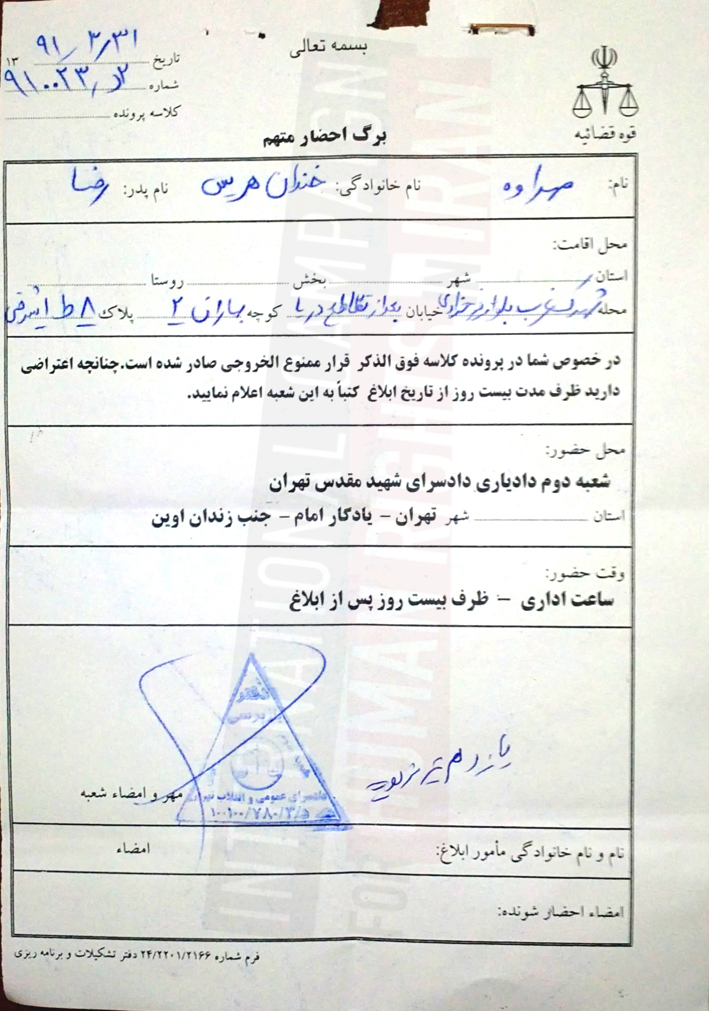 بسمه تعالی
قوه قضائیه
تاریخ ۹۱/۳/۳۱ ۱۳
شماره ۹۱۰۰۲۳/د۲
کلاسه پرونده
برگ احضار متهم
نام: مهراوه نام خانوادگی: خندان هریس نام پدر: رضا
محل اقامت:
استان شهر بخش روستا
محله شهرک غرب بلوار فرحزادی خیابان بعد از تقاطع دریا کوچه بهاران ۲ پلاک ۸ ط
در خصوص شما در پرونده کلاسه فوق الذکر قرار ممنوع الخروجی صادر شده است.چنانچه اعتراضی
دارید ظرف مدت بیست روز از تاریخ ابلاغ کتباً به این شعبه اعلام نمایید.
محل حضور:
شعبه دوم دادیاری دادسرای شهید مقدس تهران
استان شهر تهران – یادگار امام – جنب زندان اوین
وقت حضور:
ساعت اداری – ظرف بیست روز پس از ابلاغ
یازدهم تیر
مهر و امضاء شعبه
دادسرای عمومی و انقلاب تهران
نام و نام خانوادگی مأمور ابلاغ: امضاء
امضاء احضار شونده:
فرم شماره ۲۴/۲۲۰۱/۲۱۶۶ دفتر تشکیلات و برنامه ریزی
INTERNATIONAL CAMPAIGN
FOR HUMAN RIGHTS IN IRAN